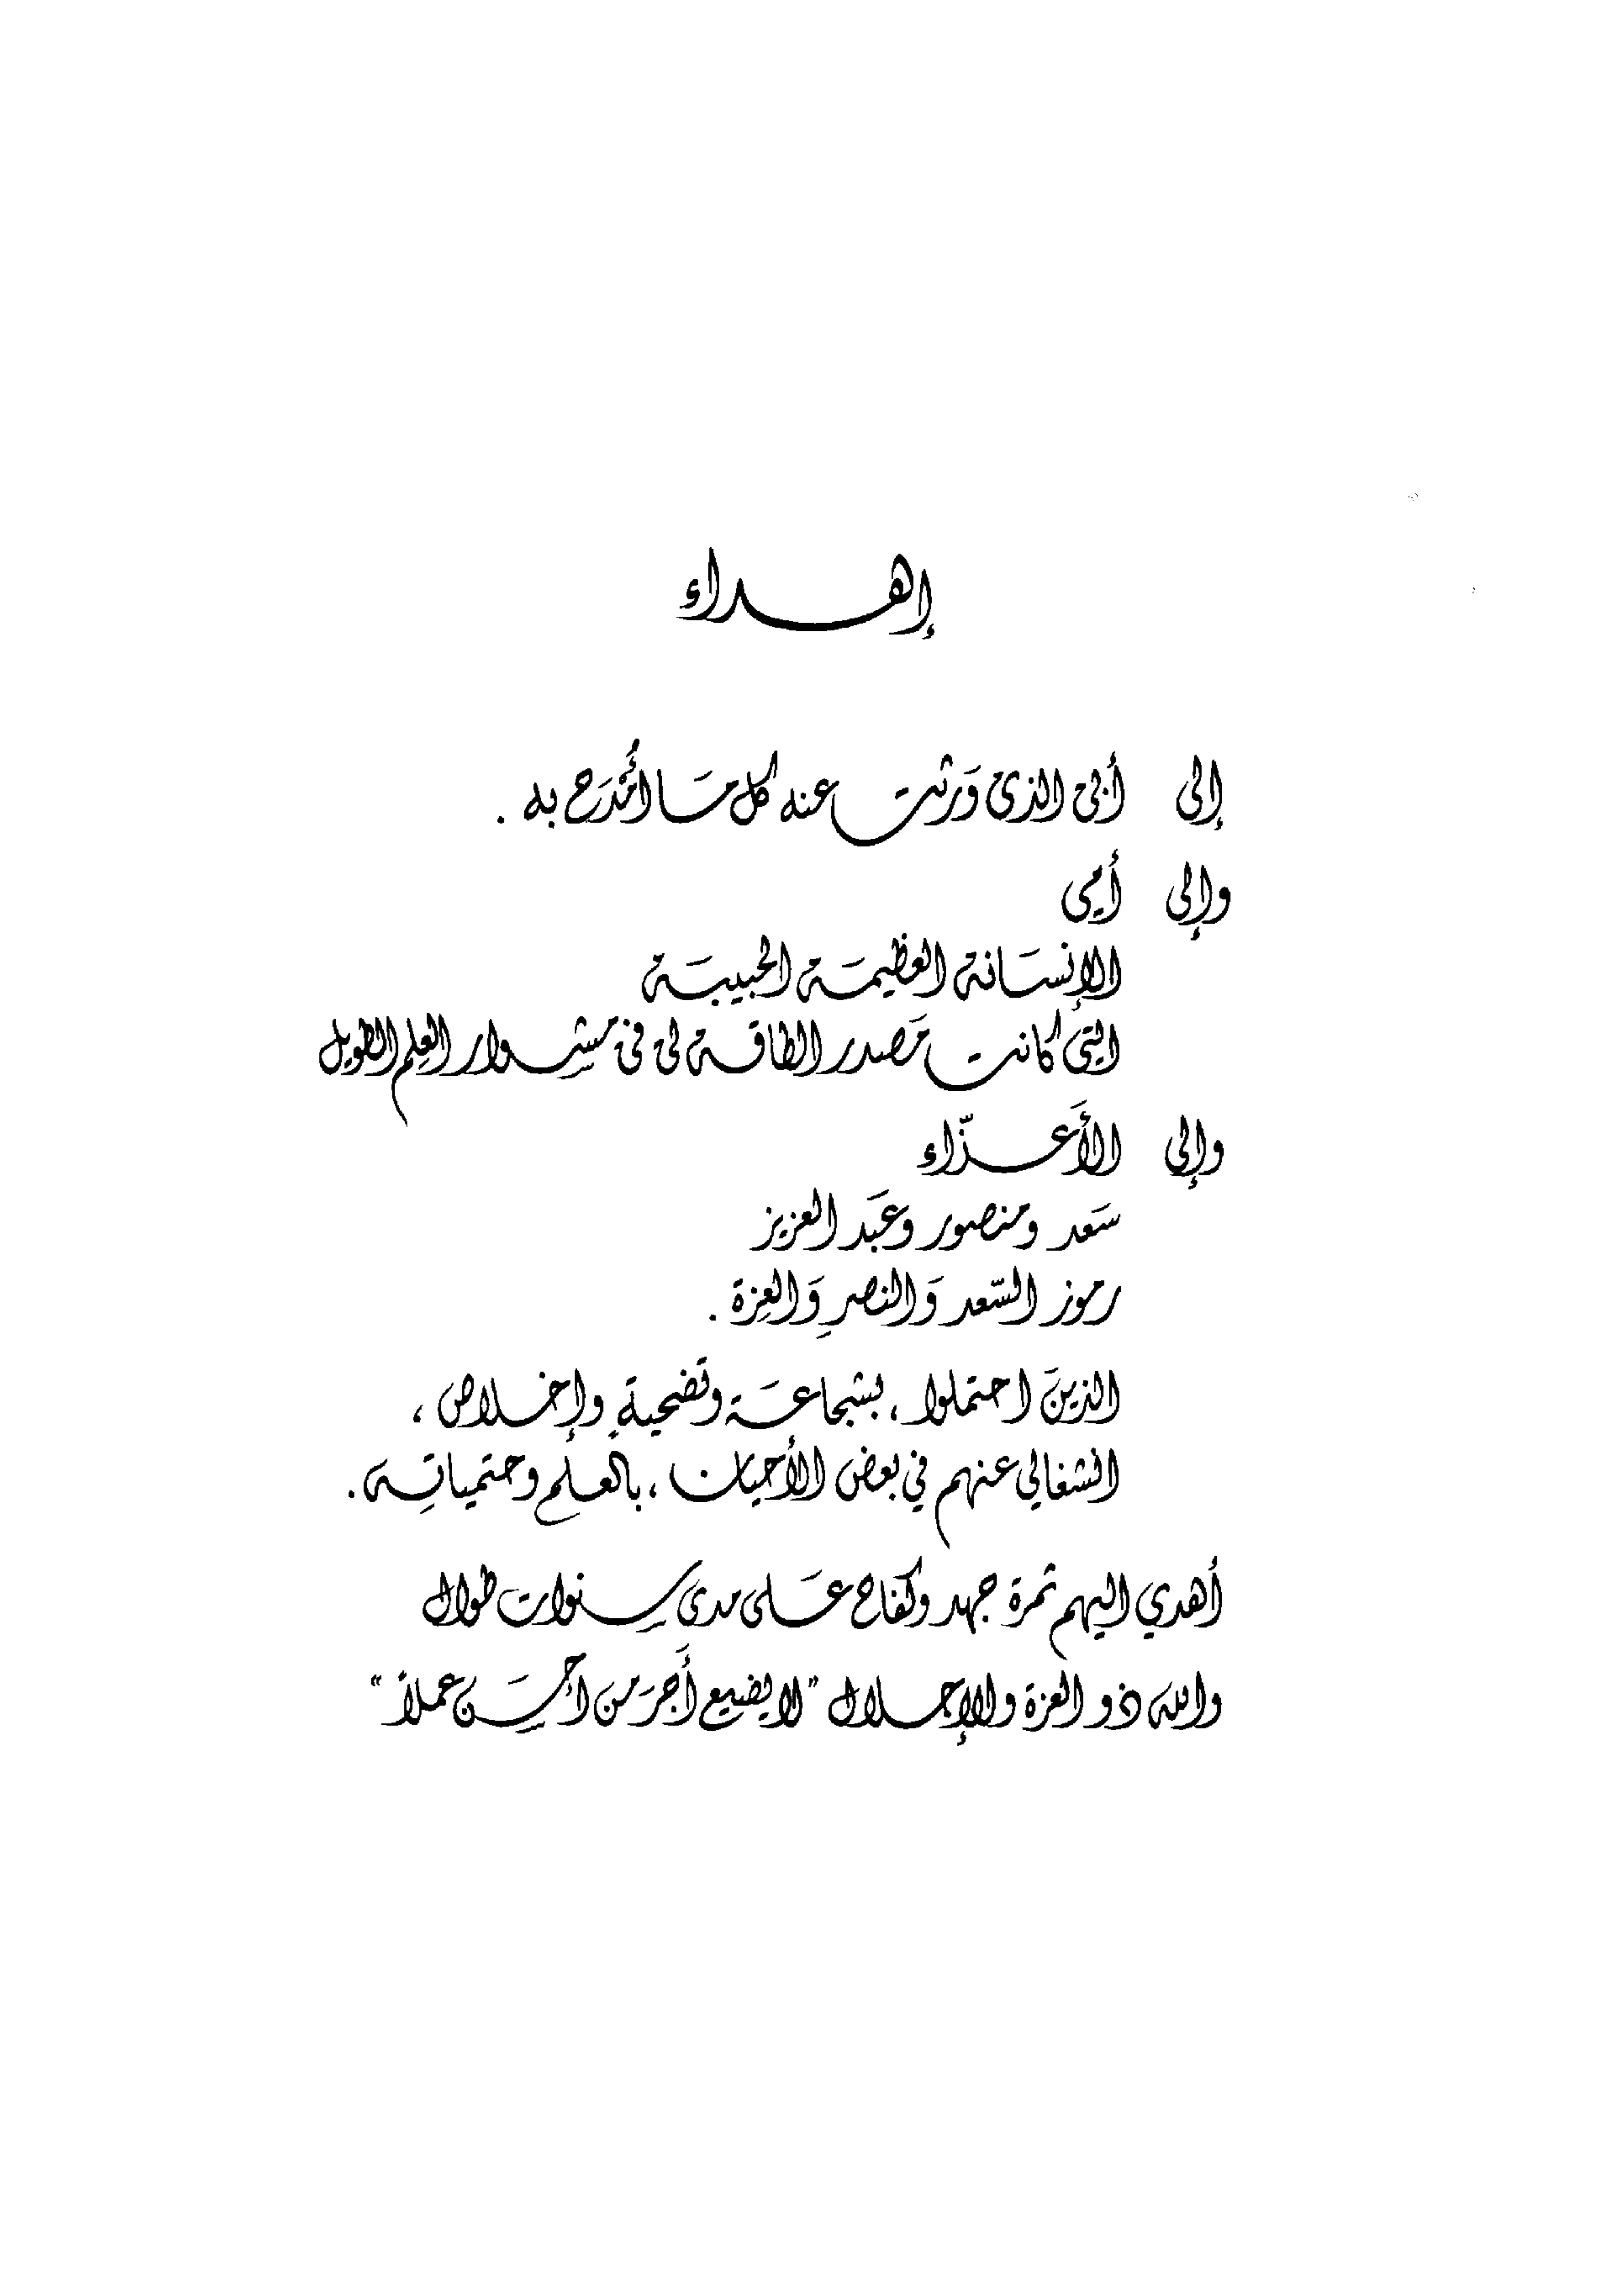 إهداء
إلى أبى الذى وَرثت عنه كل مَا أُمْدَح به .
وإلى أُمي
الإنسَانة العظيمَة الحبيبَة
التى كانت مَصدر الطاقة لى فى مشِوار العِلم الطويل
وإلى الأَعزّاء
سَعد ومنصور وعَبد العزيز
رموز السّعد وَالنصرِ وَالعِزة .
الذينَ احتملوا ، بشجاعَة وتضحيةٍ وإخلاص ،
انشغالي عنهم في بعض الأحيان ، بالعلم وحتمياتِه .
أهدي اليهم ثمرة جهد وكفاح عَلى مدى سِنوات طوال
والله ذو العزة والإجلال "لا يضيع أَجرَ من أحْسَن عملاً"